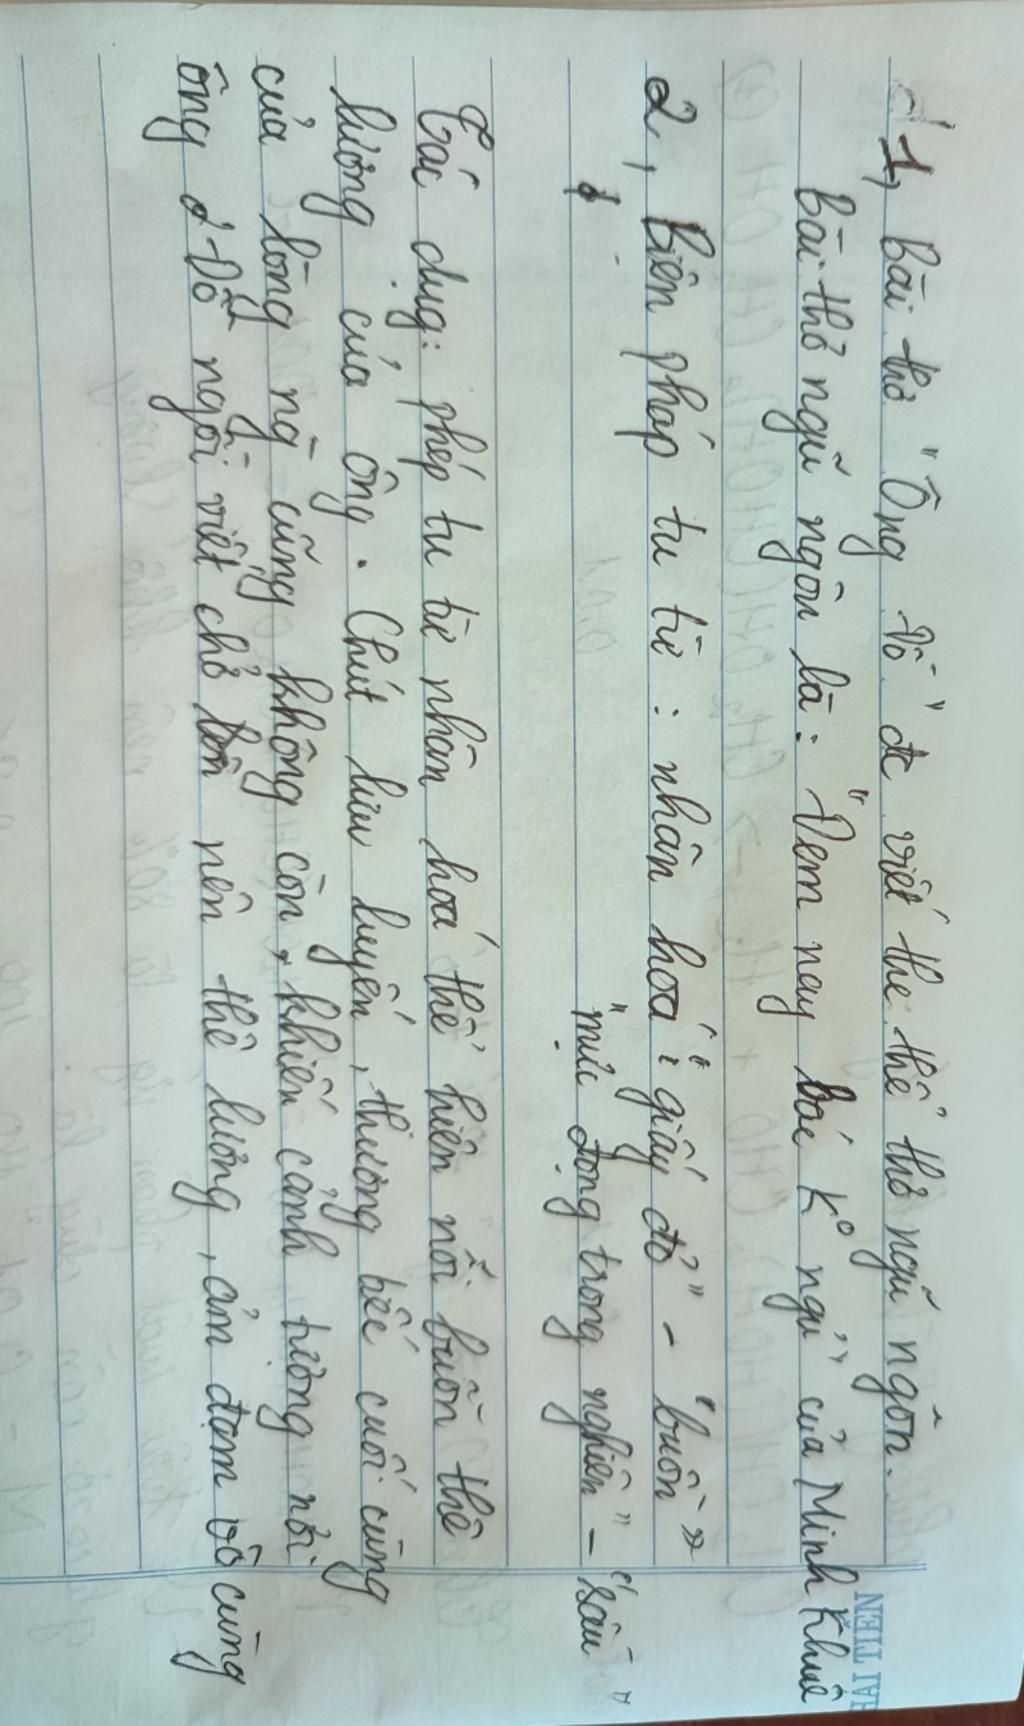 1, Bài thơ "Ông Đồ" đc viết the thể thơ ngũ ngôn.
Bài thơ ngũ ngôn là: "Đem nay bác K° ngủ" của Minh Khuê
2, Biện pháp tu từ: nhân hoá: "giấy đỏ" - "buồn"
"mực đọng trong nghiên" - "sầu"
Tác dụng: phép tu từ nhân hoá thể hiện nỗi buồn thê
lương của ông. Chút lưu luyến, thương tiếc cuối cùng
của lòng ng cũng không còn, khiến cảnh tượng nơi
ông ở Đồ ngồi viết chở nên thê lương, ảm đạm vô cùng
HẢI TIEN